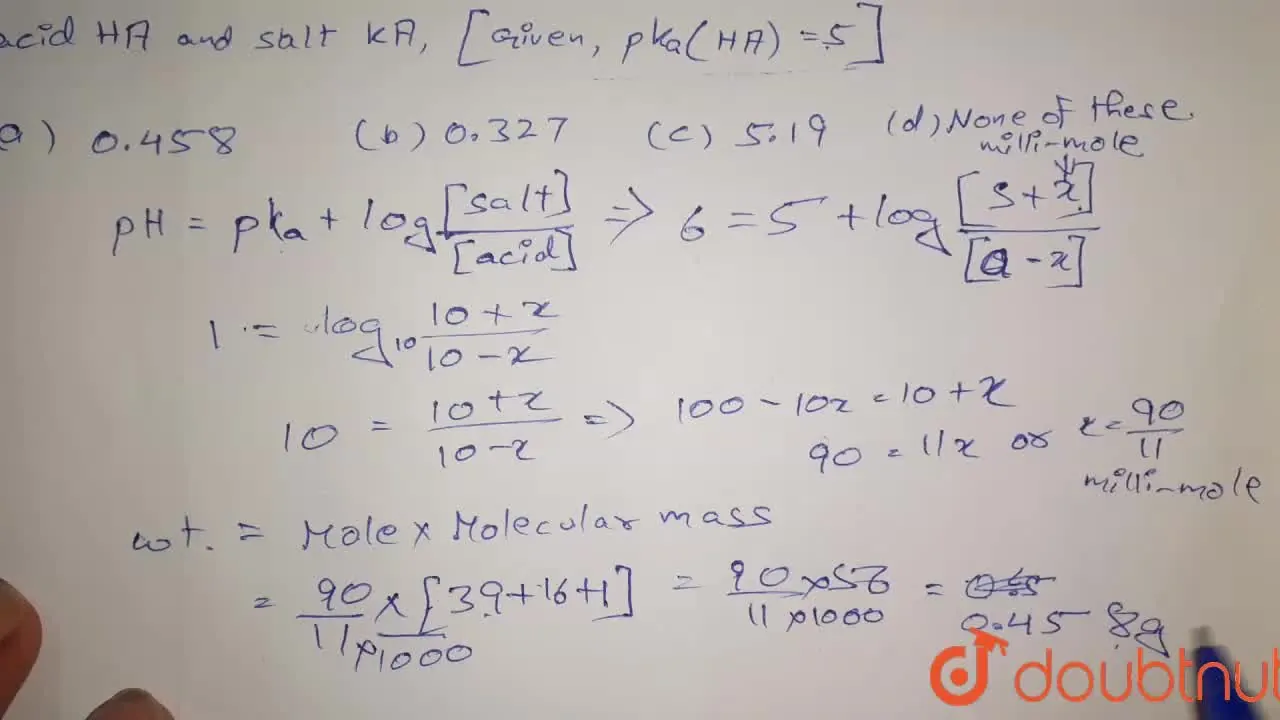 acid HA and salt KA, [Given, pka(HA) = 5]
a) 0.458 (b) 0.327 (c) 5.19 (d) None of these.
milli-mole
pH = pka + log [salt]/[acid] => 6 = 5 + log [s + x]/[a - x]
1 = log10 10 + x / 10 - x
10 = 10 + x / 10 - x => 100 - 10x = 10 + x
90 = 11x or x = 90/11
milli-mole
wt. = Mole x Molecular mass
= 90/11x1000 x [39 + 16 + 1] = 90 x 56 / 11 x 1000 = 0.458g
doubtnut